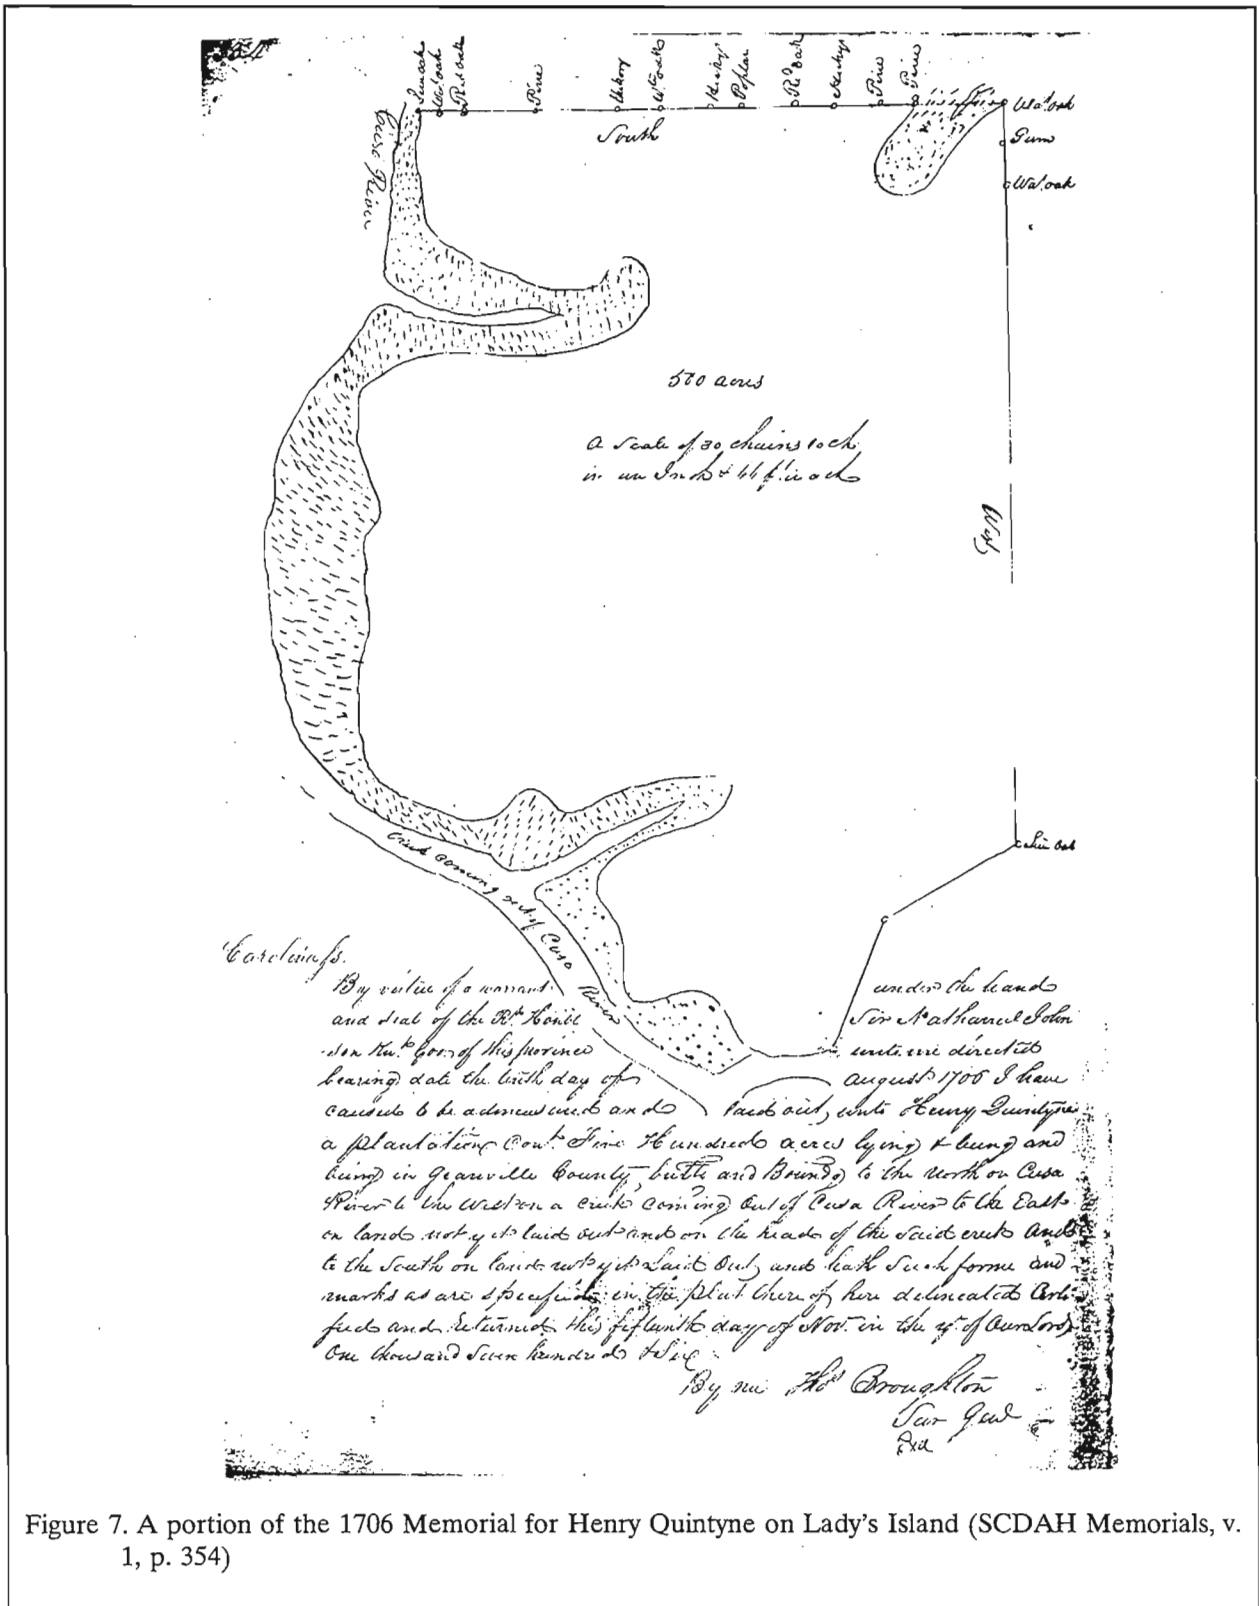 Pine
Hickory
Poplar
Pine
Pine
Wa: oak
Gum
Wa: oak
South
Cusa River
500 acres
a Scale of 20 chains each
in an Inch & 66 ft. in each
West
Live Oak
Creek coming out of Cusa River
Carolina ss.
By virtue of a warrant under the hand
and seal of the Rt. Honble Sir Nathaniel John
son Knt. Gov. of this province unto me directed
bearing date the tenth day of august 1706 I have
caused to be admeasured and laid out, unto Henry Quintyne
a plantation Cont. Five Hundred acres lying & being and
being in Granville County, butts and Bounds to the north on Cusa
River to the West on a creek coming Out of Cusa River to the East
on lands not yet laid out and on the heads of the said creek and
to the South on lands not yet Laid Out, and hath Such forme and
marks as are specified in the plat thereof here delineated Certi-
fied and Returned this fifteenth day of Nov. in the yr. of Our Lord
One thousand Seven hundred & Six
By me Thos Broughton
Sur Genl
Figure 7. A portion of the 1706 Memorial for Henry Quintyne on Lady's Island (SCDAH Memorials, v.
1, p. 354)